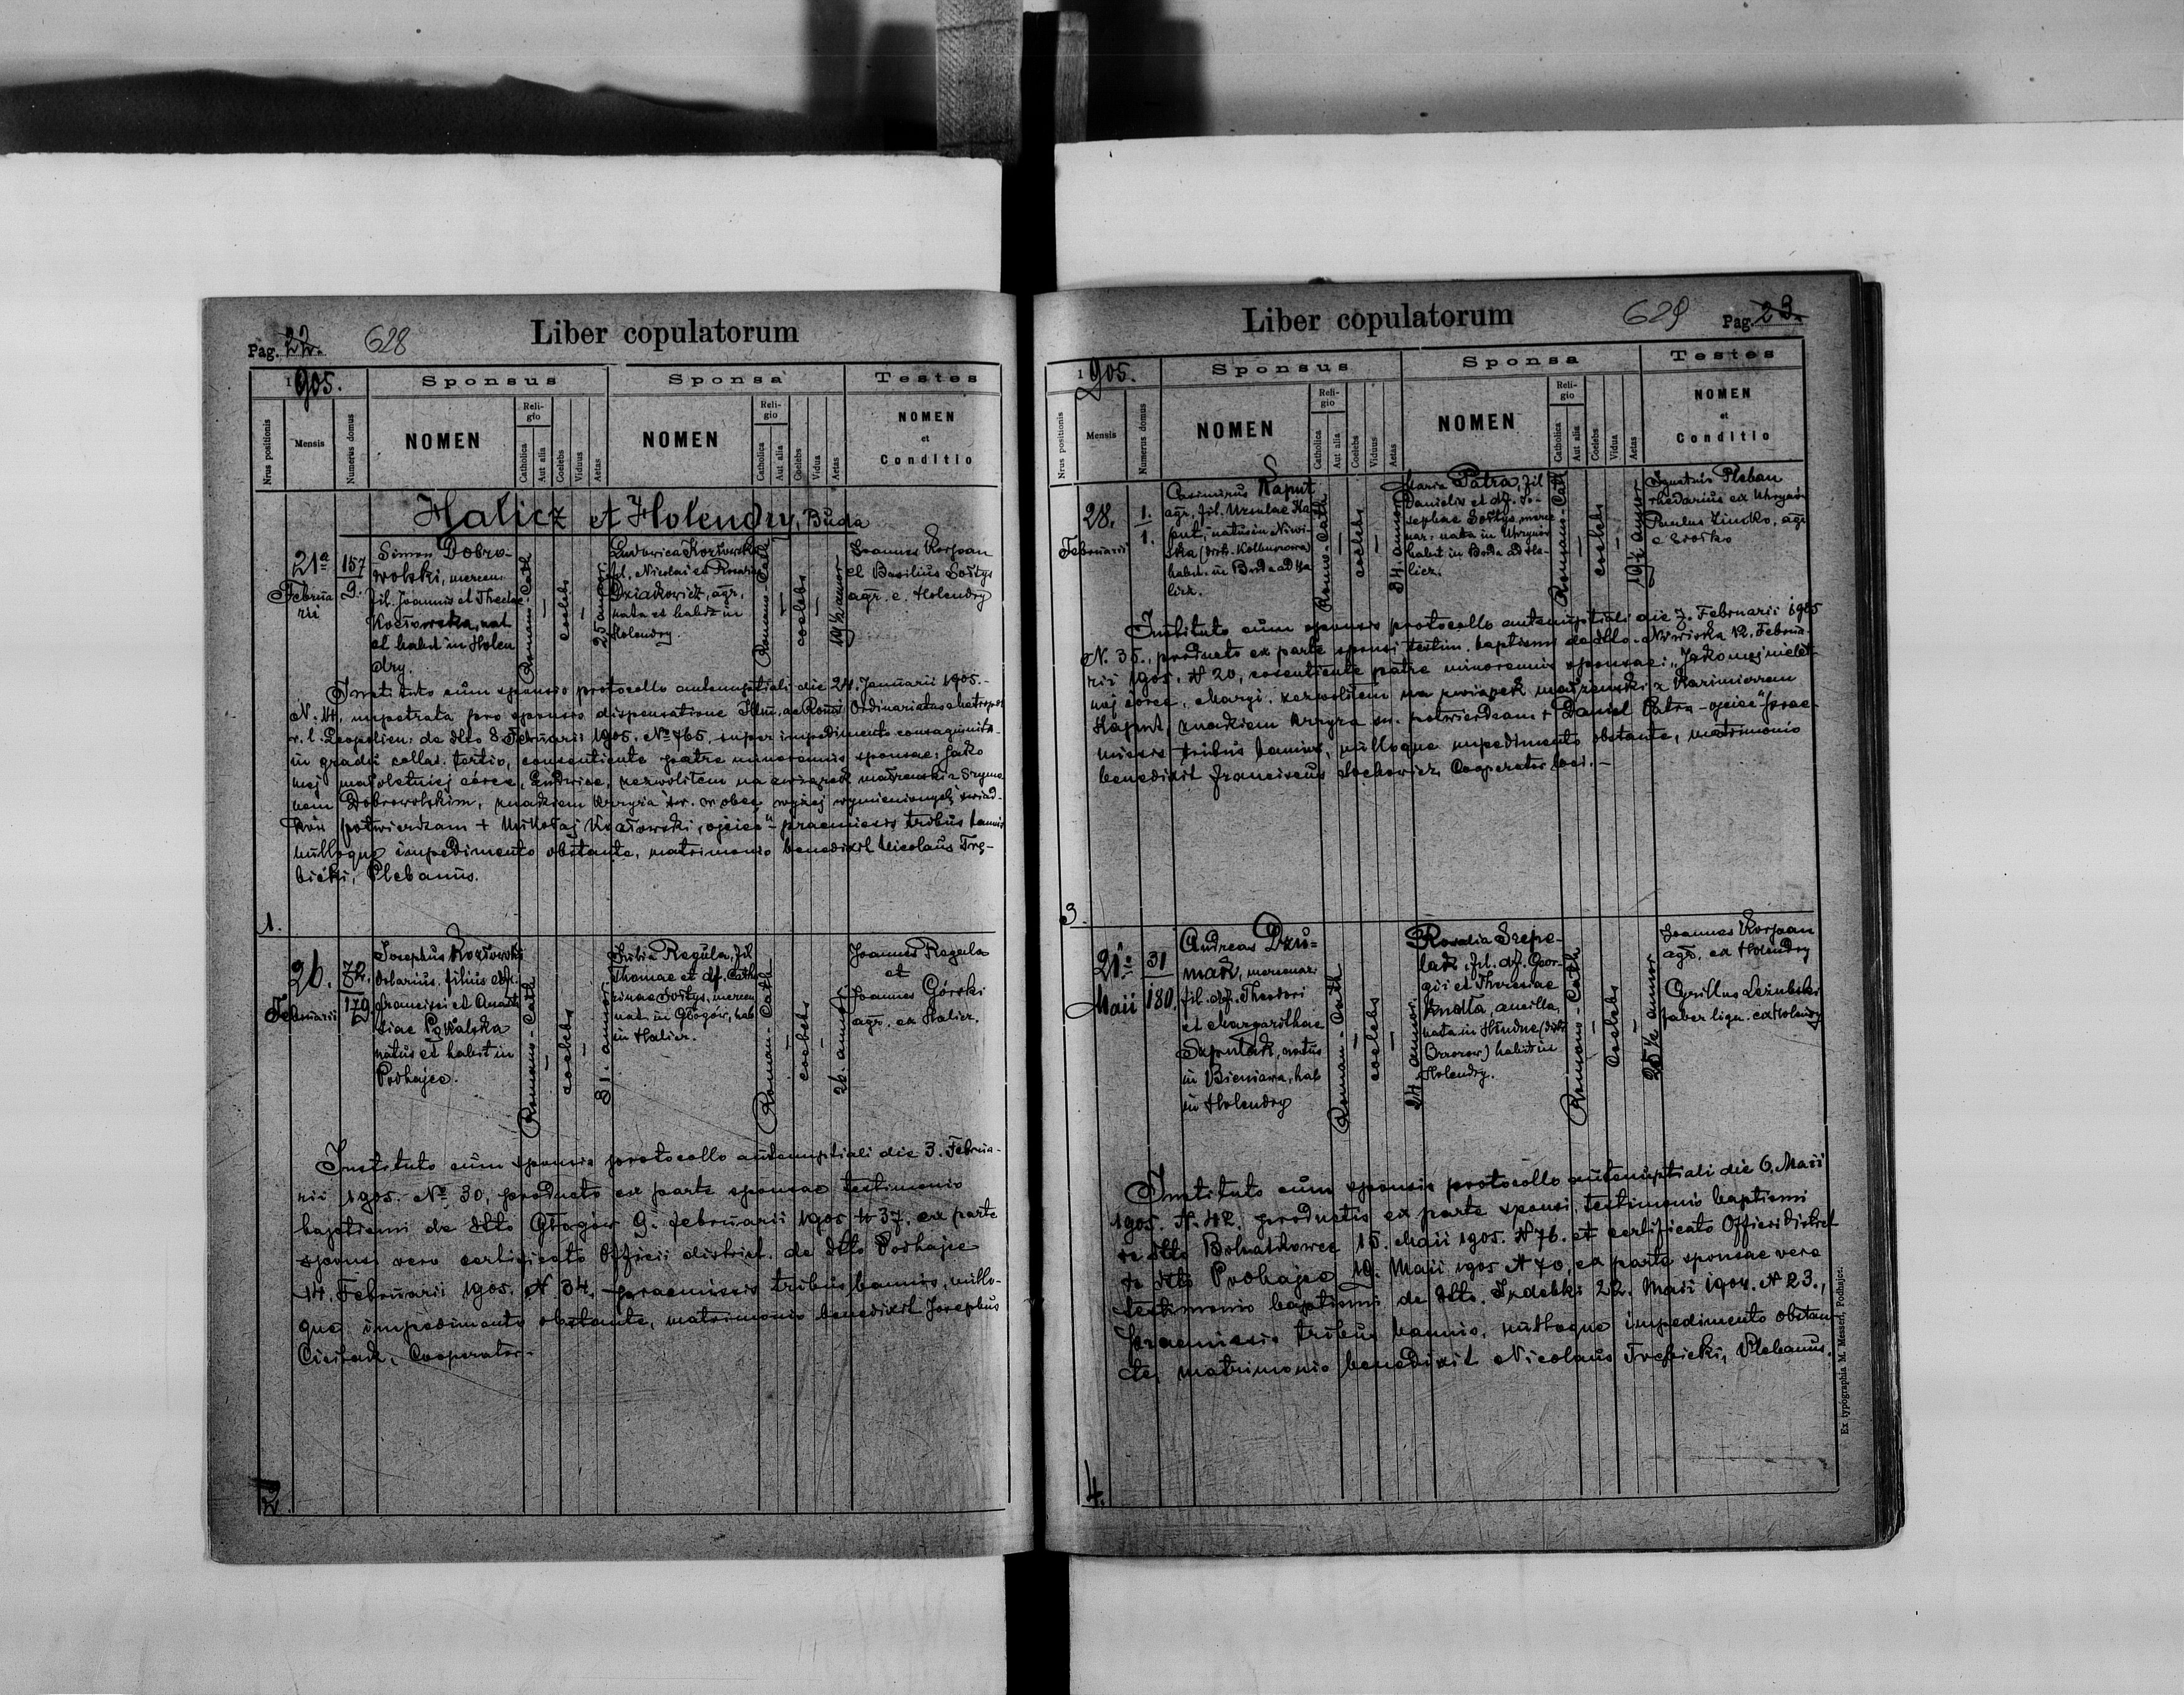 Pag. 22. 628 Liber copulatorum
1905. Sponsus Sponsa Testes
Nrus positionis Mensis Numerus domus NOMEN Religio Catholica Aut alia Coelebs Viduus Aetas NOMEN Religio Catholica Aut alia Coelebs Vidua Aetas NOMEN et Conditio
Halicz et Holendry, Buda
21a Februarii
157
9.
Simon Dobro-
wolski, mercen.
fil. Joannis et Theclae
Kozłowska, nat.
et habit in Holen
dry.
Romano-Cath
—
coelebs
—
25 annor.
Ludovica Kozłowska
fil. Nicolai et Rosaliae
Dziakowicz, agr.,
nata et habit in
Holendry.
Romano-Cath
—
coelebs
—
19½ annor
Joannes Korpan
et Basilius Sołtys
agr. e. Holendry
Instituto cum sponsis protocollo antenuptiali die 24. Januarii 1905.-
N. 14, impetrata pro sponsis dispensatione Illm. ac Roms Ordinariatus Metropol
r. l. Leopolien. de dto 8 Februarii 1905. No 765, super impedimento consaguinita-
in gradu collat. tertio, consentiente patre minorennis sponsae: Jako
mej małoletniej córce, Ludwice, zezwoliłem na związek małżenski z Szymo
nem Dobrowolskim, znakiem krzyża św. w obec wyżej wymienionych świad-
ków potwierdzam + Mikołaj Kozłowski, ojciec" - praemissis tribus bannis
nulloque impedimento obstante, matrimonio benedixit Nicolaus Trę-
bicki, Plebanus.
1.
26.
Februarii
72.
179
Josephus Kozłowski
dolarius, filius def.
Francisci et Anasta
siae Pękalska
natus et habit in
Podhajce.
Romano-Cath
—
coelebs
—
31. annor.
Julia Reguła, fil
Thomae et df. Cath
rinae Sołtys, mercen
nat. in Głogów, hab
in Halicz.
Roman-Cath
—
coelebs
—
26. annor.
Joannes Reguła
et
Joannes Górski
agr. ex Halicz.
Instituto cum sponsis protocollo antenuptiali die 3. Februa-
rii 1905. No 30, producto ex parte sponsae testimonio
baptismi de dto Głogów 9. februarii 1905 N 37. ex parte
sponsi vero certificato Officii district. de dto Podhajce
14. Februarii 1905. N. 34. - praemissis tribus bannis, nullo-
que impedimento obstante, matrimonio benedixit Josephus
Cooperator-
2.
Liber copulatorum 629 Pag. 23.
1905. Sponsus Sponsa Testes
Nrus positionis Mensis Numerus domus NOMEN Religio Catholica Aut alia Coelebs Viduus Aetas NOMEN Religio Catholica Aut alia Coelebs Vidua Aetas NOMEN et Conditio
28.
Februarii
1.
1.
Casimirus Kaput
agr., fil. Ursulae Ka
put, natus in Niwi-
ska (distr. Kolbuszowa)
habit. in Buda ad Ha
licz.
Romano-Cath
—
coelebs
—
24. annor
Maria Patra, fil
Danielis et df. Jo-
sephae Sołtys, merce
nar. nata in Uhrynów
habit in Buda ad Ha-
licz.
Romano-Cath
—
coelebs
—
19½ annor
Ignatius Pleban
rhedarius ex Uhrynów
Paulus Zinsko, agr
e
Instituto cum sponsis protocollo antenuptiali die 7. Februarii 1905
N. 35., producto ex parte sponsi testim. baptismi de dto. Niwiska 12. Februa-
rii 1905. N 20, consentiente patre minorennis sponsae: "Jako mej nielet-
niej córce, Maryi, zezwoliłem na związek małżenski z Kazimierzem
Kaput, znakiem krzyża św. potwierdzam + Daniel Patra - ojciec" prae-
missis tribus bannis, nulloque impedimento obstante, matrimonio
benedixit Franciscus Cooperator loci.-
3.
21a
Maii
31
180.
Andreas Dzu-
mak, mercenar.
fil. df. Theodori
et Margarithae
natus
in Bieniawa, hab
in Holendry
Roman-Cath
—
coelebs
—
24 annor.
Rosalia Szepe-
lak, fil. df. Geor-
gii et Theresiae
Knotła, ancilla,
nata in Hludne (distr
Brzozow) habit in
Holendry.
Romano-Cath
—
Coelebs
—
25½ annor
Joannes Korpan
agr. ex Holendry
Cyrillus
faber lign. ex Holendry
Instituto cum sponsis protocollo antenuptiali die 6. Maii
1905. N. 42. productis ex parte sponsi, testimonio baptismi
de dto 15. Maii 1905. N 76. et certificato Officii district
de dto Podhajce 19. Maii 1905 N 70, ex parte sponsae vero
testimonio baptismi de dto. Izdebki 22. Maii 1904. N 23.,
praemissis tribus bannis, nulloque impedimento obstan
te, matrimonio benedixit Nicolaus Trębicki, Plebanus.
4.
Ex typographia M. Messeri, Podhajce.